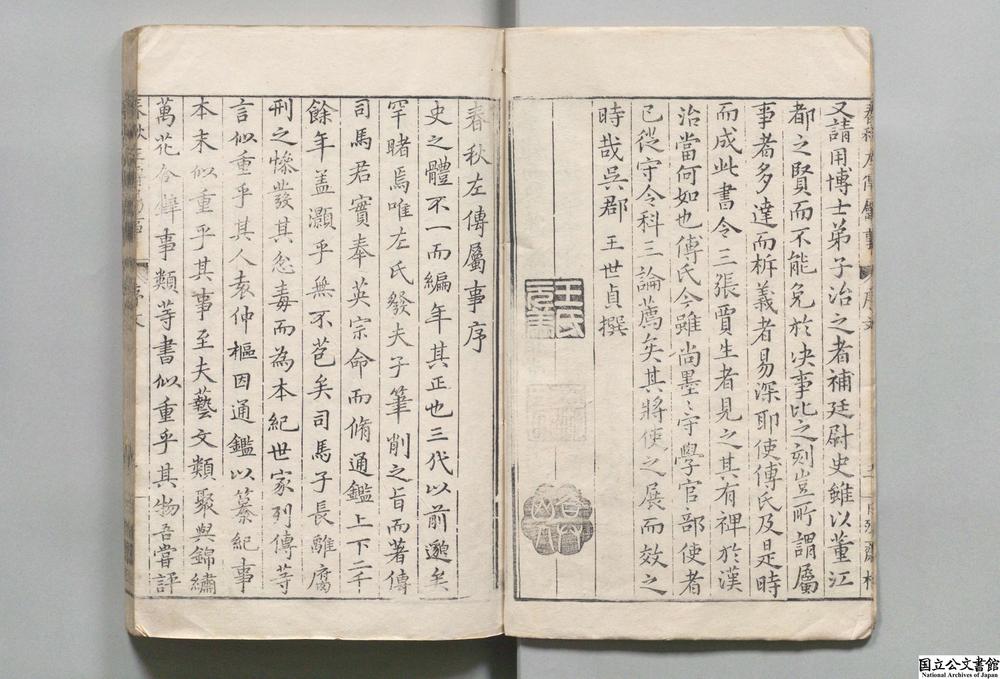 又請用博士弟子治之者補廷尉史雖以董江
都之賢而不能免於决事比之刻豈所謂屬
事者多達而析義者易深耶使傅氏及是時
而成此書令三張賈生者見之其有裨於漢
治當何如也傅氏今雖尚墨〻守學官部使者
已從守令科三論薦矣其將使之展而效之
時哉吳郡 王世貞撰
王氏元美
春秋左傳屬事序
史之體不一而編年其正也三代以前邈矣
罕睹焉唯左氏發夫子筆削之旨而著傳
司馬君實奉英宗命而脩通鑑上下二千
餘年盖灝乎無不苞矣司馬子長雖腐
刑之慘發其忿毒而為本紀世家列傳等
言似重乎其人袁仲樞因通鑑以纂紀事
本末似重乎其事至夫藝文類聚與錦繡
萬花谷韓事類等書似重乎其物吾嘗評
国立公文書館
National Archives of Japan